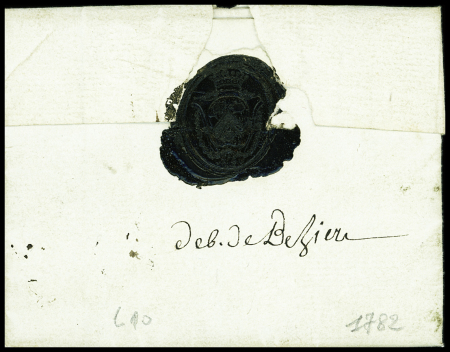 deb. de Beziers
610
1782